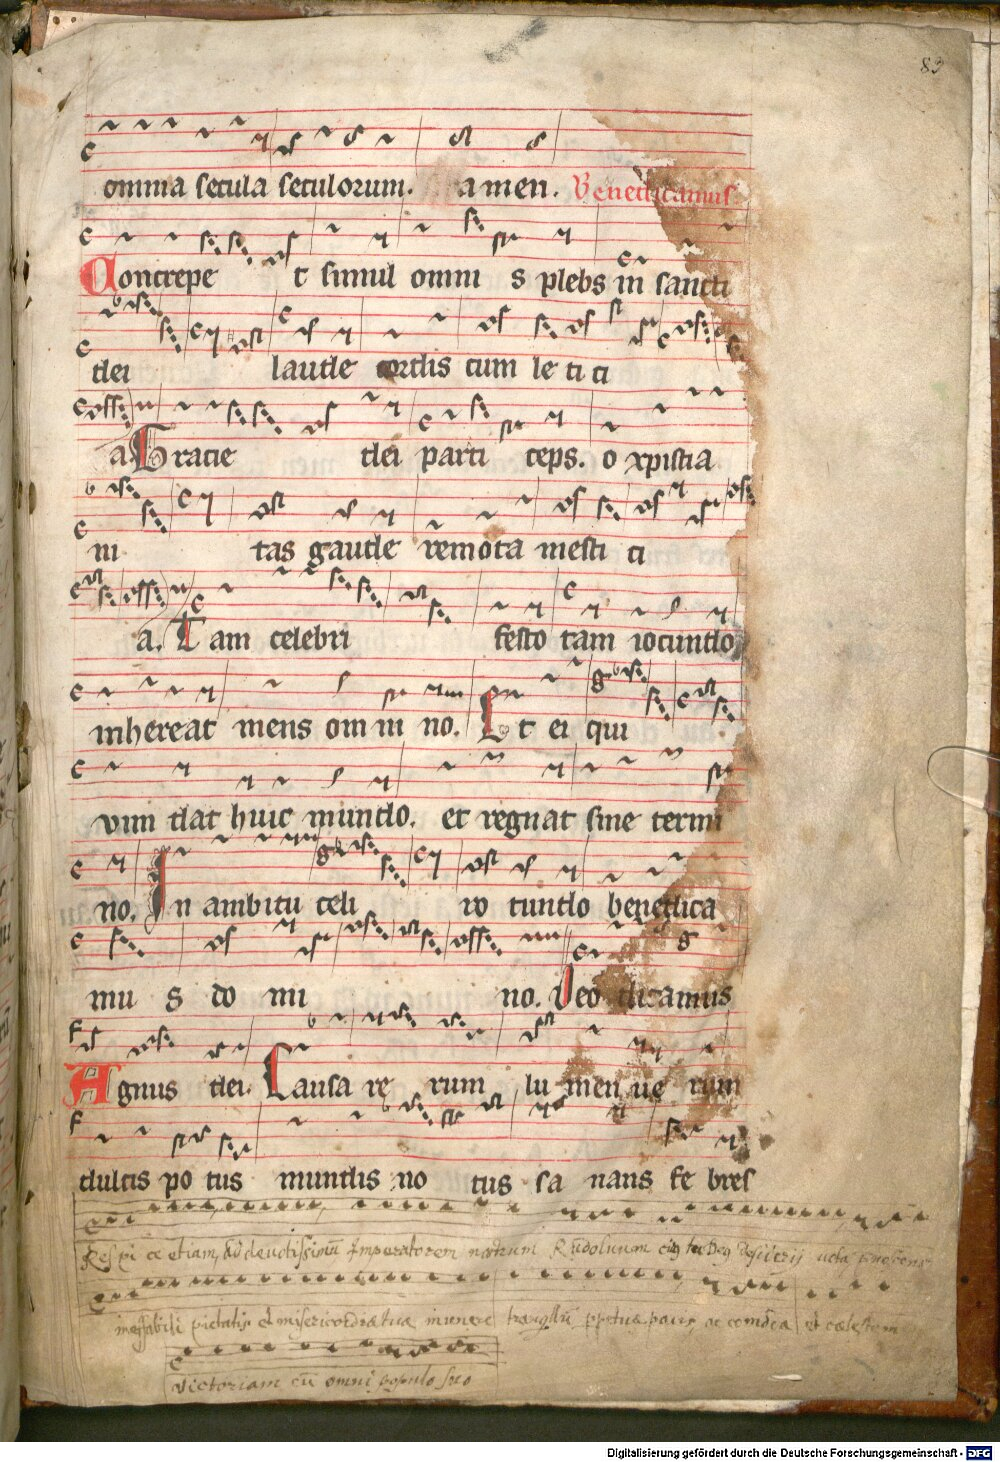 83
omnia secula seculorum. amen. Benedicamus
Concrepe t simul omni s plebs in sancti
dei laude cordis cum le ti ci
a Gracie dei parti ceps. o xpistia
ni tas gaude remota mesti ci
a. Tam celebri festo tam iocundo
inhereat mens om ni no. Et ei qui
vim dat huic mundo. et regnat sine termi
no. In ambitu celi ro tundo benedica
mu s do mi no. Deo dicamus
Agnus dei. Causa re rum lu men ue rum
dulcis po tus mundis no tus sa nans fe bres
Respi ce etiam, ad deuotissimū Imperatorem nostrum Rudoluum Deg desiderij
ineffabili pietatis et misericordiæ tuæ munere
victoriam cū omni populo suo
Digitalisierung gefördert durch die Deutsche Forschungsgemeinschaft - DFG